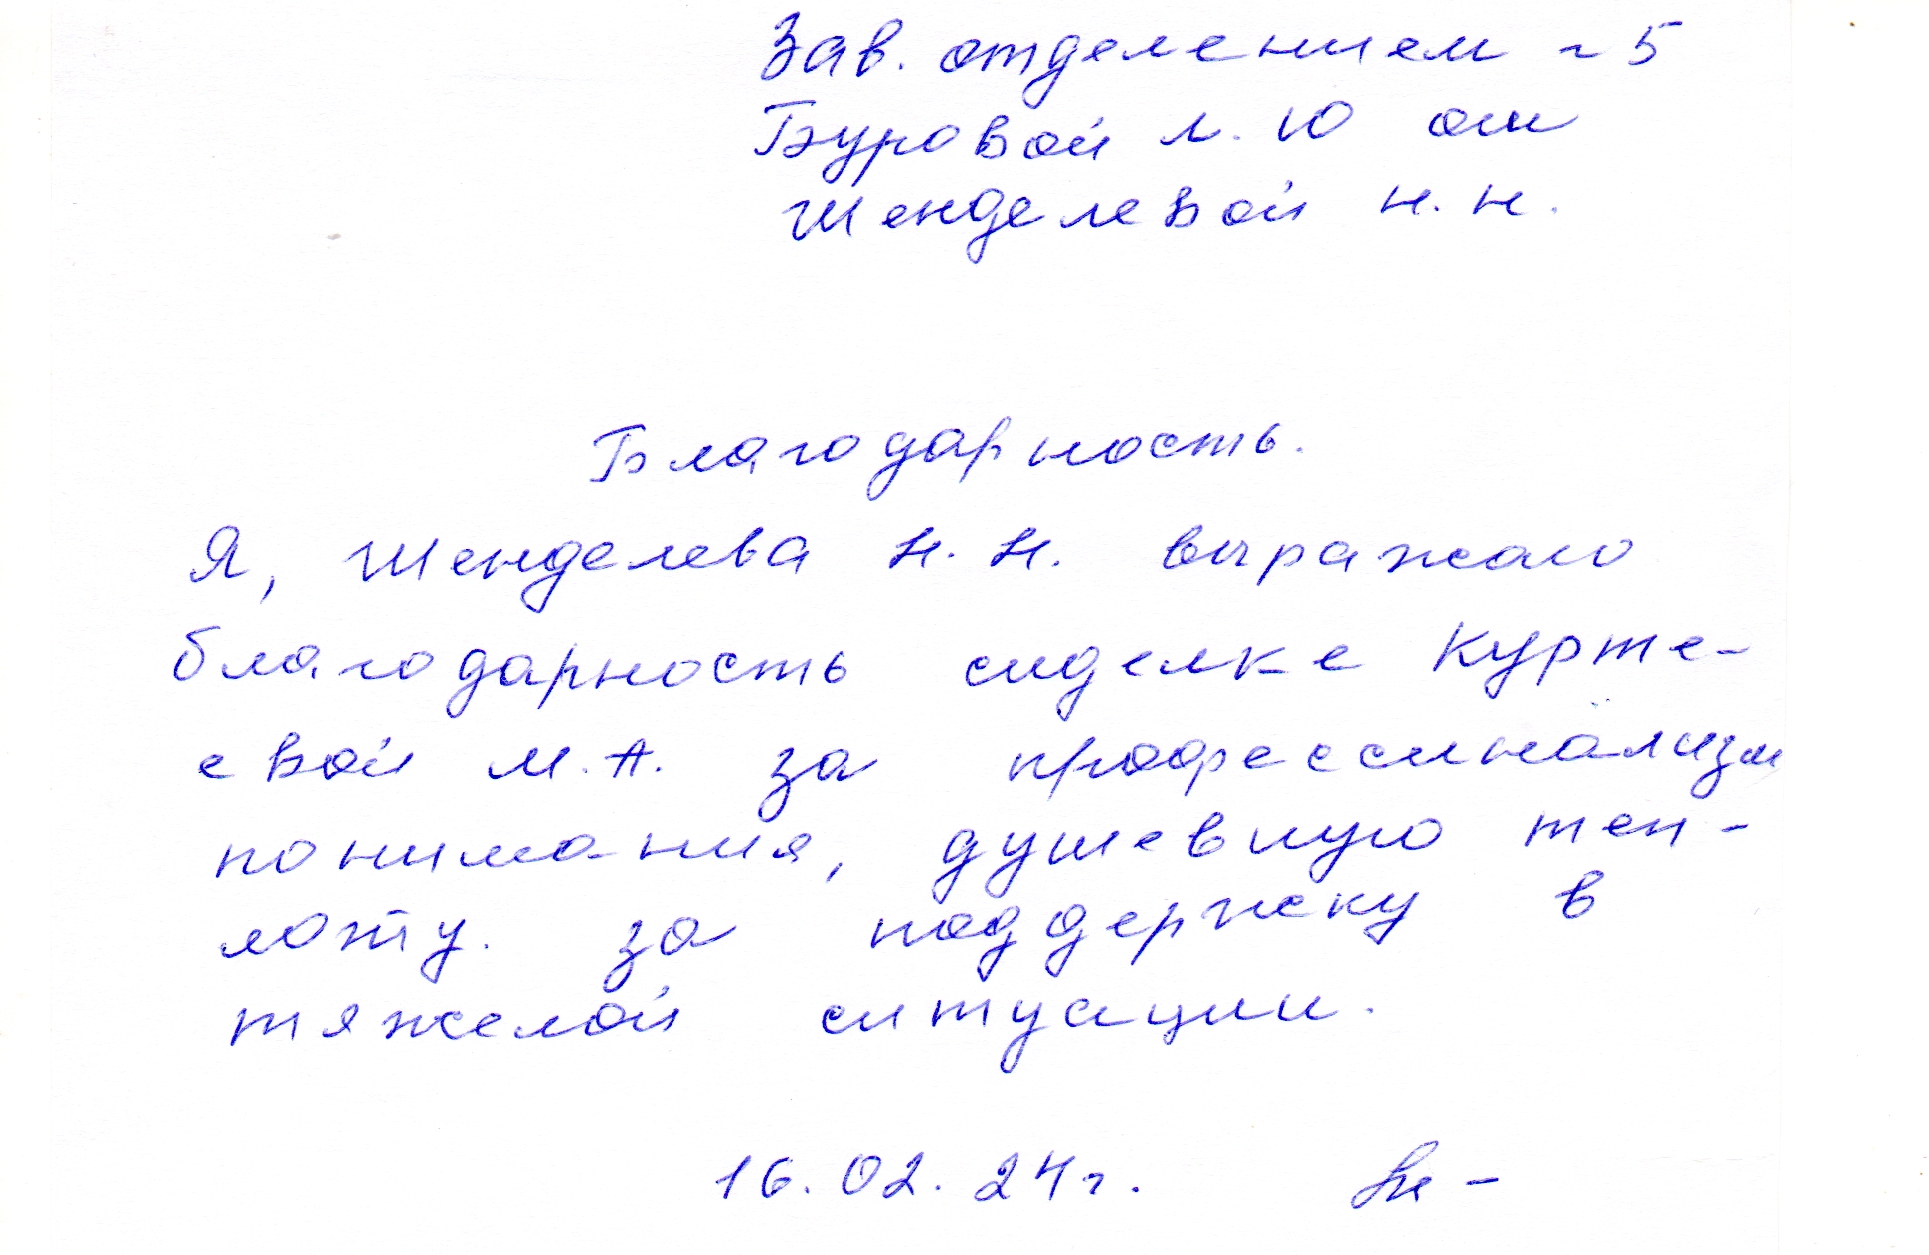 Зав. отделением ~ 5
Буровой Л. Ю от
Шенделевой Н. Н.
Благодарность.
Я, Шенделева Н. Н. выражаю
благодарность сиделке Курте-
евой М. А. за профессинализм
понимания, душевную теп-
лоту. за поддержку в
тяжелой ситуации.
16.02.24г.